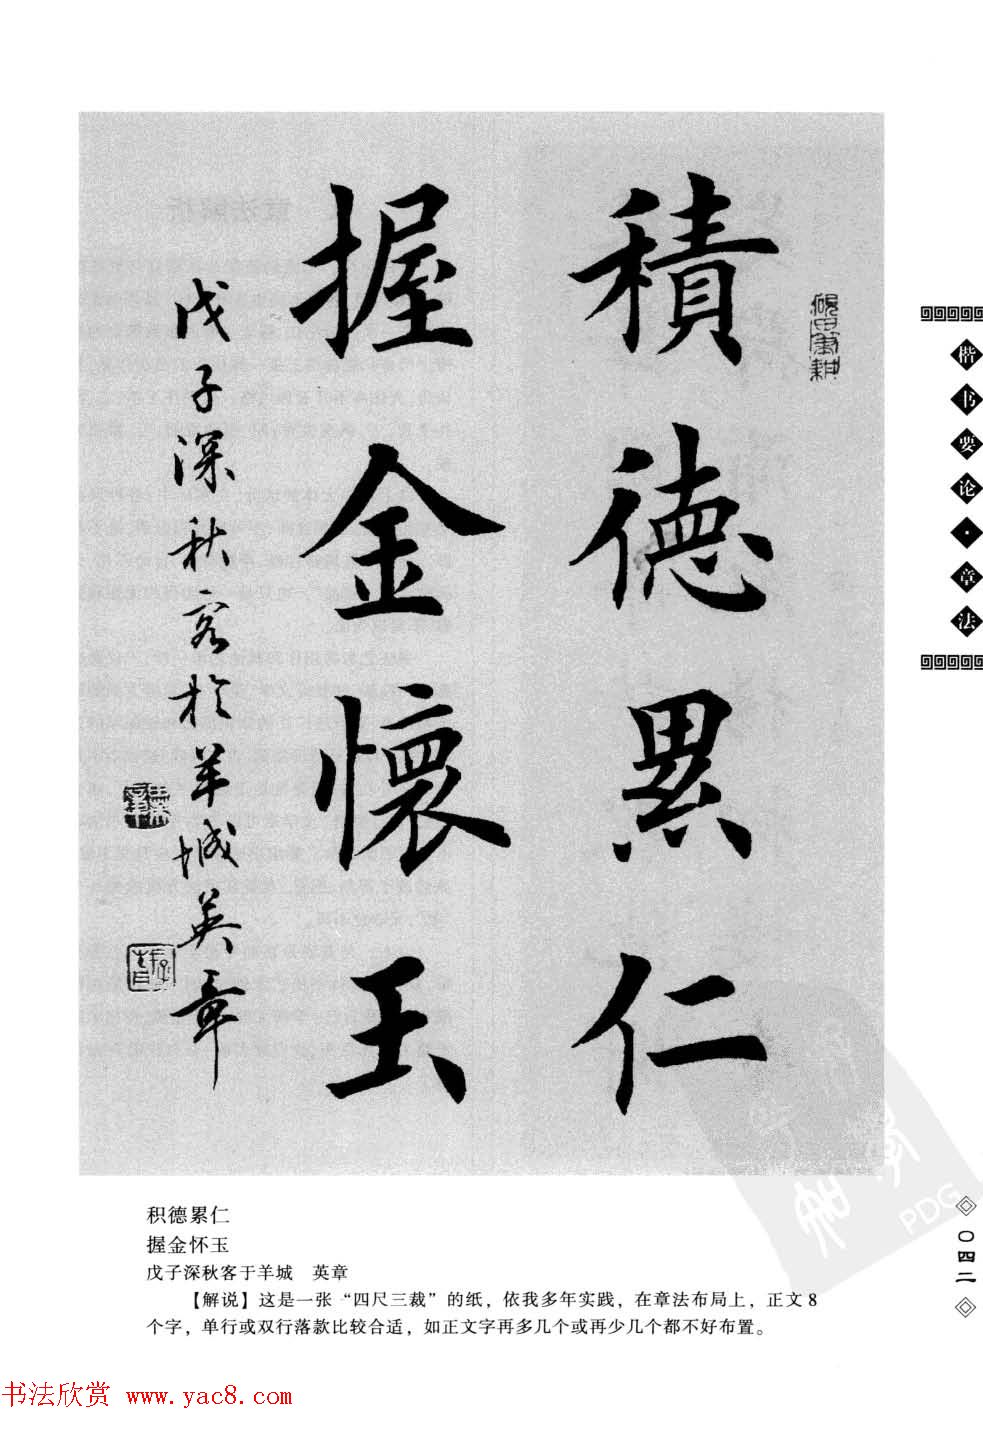 積德累仁
握金懷玉
戊子深秋客於羊城英章
硯田筆耕
楷书要论·章法
积德累仁
握金怀玉
戊子深秋客于羊城 英章
【解说】这是一张“四尺三裁”的纸，依我多年实践，在章法布局上，正文8
个字，单行或双行落款比较合适，如正文字再多几个或再少几个都不好布置。
〇四二
PDG
书法欣赏 www.yac8.com